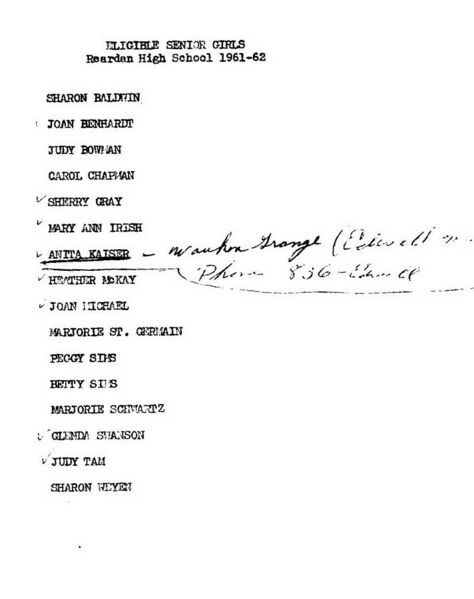 ELIGIBLE SENIOR GIRLS
Reardan High School 1961-62
SHARON BALDWIN
JOAN BENHARDT
JUDY BOWMAN
CAROL CHAPMAN
✓ SHERRY GRAY
✓ MARY ANN IRISH
✓ ANITA KAISER - Waukon Grange (
Phone 836-
✓ HEATHER McKAY
✓ JOAN MICHAEL
MARJORIE ST. GERMAIN
PEGGY SIMS
BETTY SIMS
MARJORIE SCHWARTZ
✓ GLENDA SWANSON
✓ JUDY TAM
SHARON WEYEN